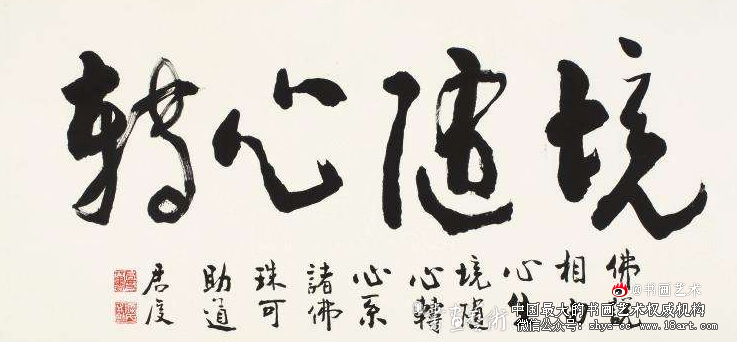 境隨心轉
佛說
相由
心生
境隨
心轉
心系
諸佛
珠可
助道
@书画艺术
中国最大的书画艺术权威机构
微信公众号：shys-cc www.18art.com